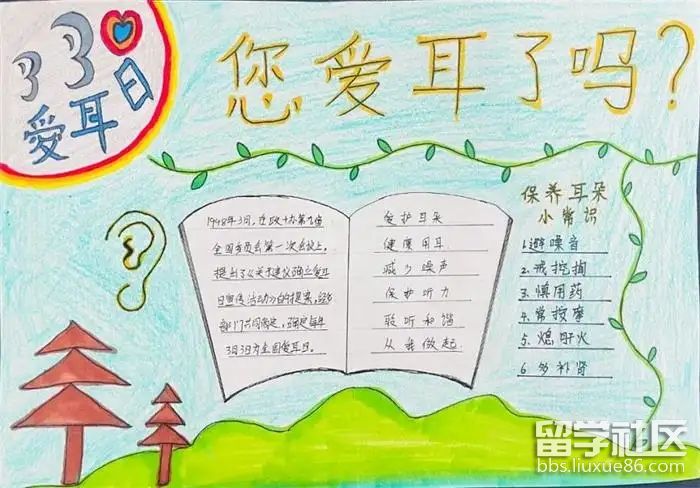 33
爱耳日
您爱耳了吗?
1998年3月,在政协第九届
全国委员会第一次会议上,
提出了《关于建议确立爱耳
日宣传活动》的提案,经
部门共同商定,确定每年
3月3日为全国爱耳日。
爱护耳朵
健康用耳
减少噪声
保护听力
聆听和谐
从我做起
保养耳朵
小常识
1.避噪音
2.戒挖掏
3.慎用药
4.常按摩
5.熄肝火
6.多补肾
留学社区
bbs.liuxue86.com